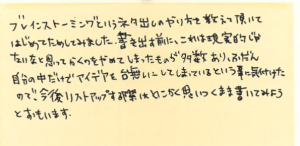 ブレインストーミングというネタ出しのやり方を教えて頂いて
はじめてためしてみました。書き出す前に、これは現実的じゃ
ないなと思ってかくのをやめてしまったものが多数あり、ふだん
自分の中だけでアイデアを台無しにしてしまっているという事に気付けた
ので、今後リストアップする際はとにかく思いつくまま書いてみよう
とおもいます。